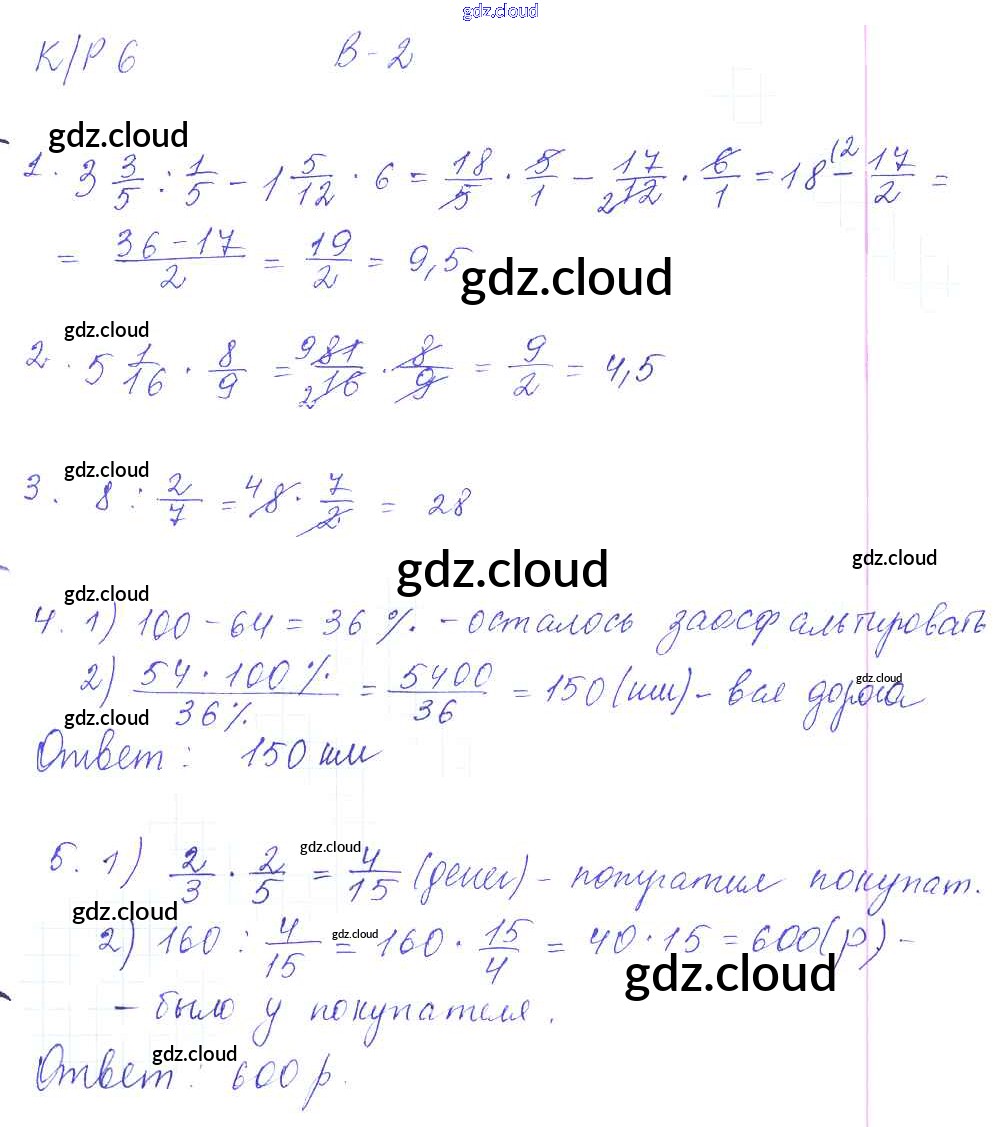 gdz.cloud
К/Р 6 В-2
gdz.cloud
1. 3 3/5 : 1/5 - 1 5/12 · 6 = 18/5 · 5/1 - 17/12 · 6/1 = 18 - 17/2 =
= (36-17)/2 = 19/2 = 9,5
gdz.cloud
gdz.cloud
2. 5 1/16 · 8/9 = 81/16 · 8/9 = 9/2 = 4,5
gdz.cloud
3. 8 : 2/7 = 8 · 7/2 = 28
gdz.cloud
gdz.cloud
gdz.cloud
4. 1) 100 - 64 = 36 % - осталось заасфальтировать
2) (54 · 100 %)/(36 %) = 5400/36 = 150 (км) - вся дорога
gdz.cloud
gdz.cloud
Ответ : 150 км
gdz.cloud
5. 1) 2/3 · 2/5 = 4/15 (денег) - потратил покупат.
gdz.cloud
2) 160 : 4/15 = 160 · 15/4 = 40 · 15 = 600 (р) -
gdz.cloud
gdz.cloud
- было у покупателя.
gdz.cloud
Ответ : 600 р.